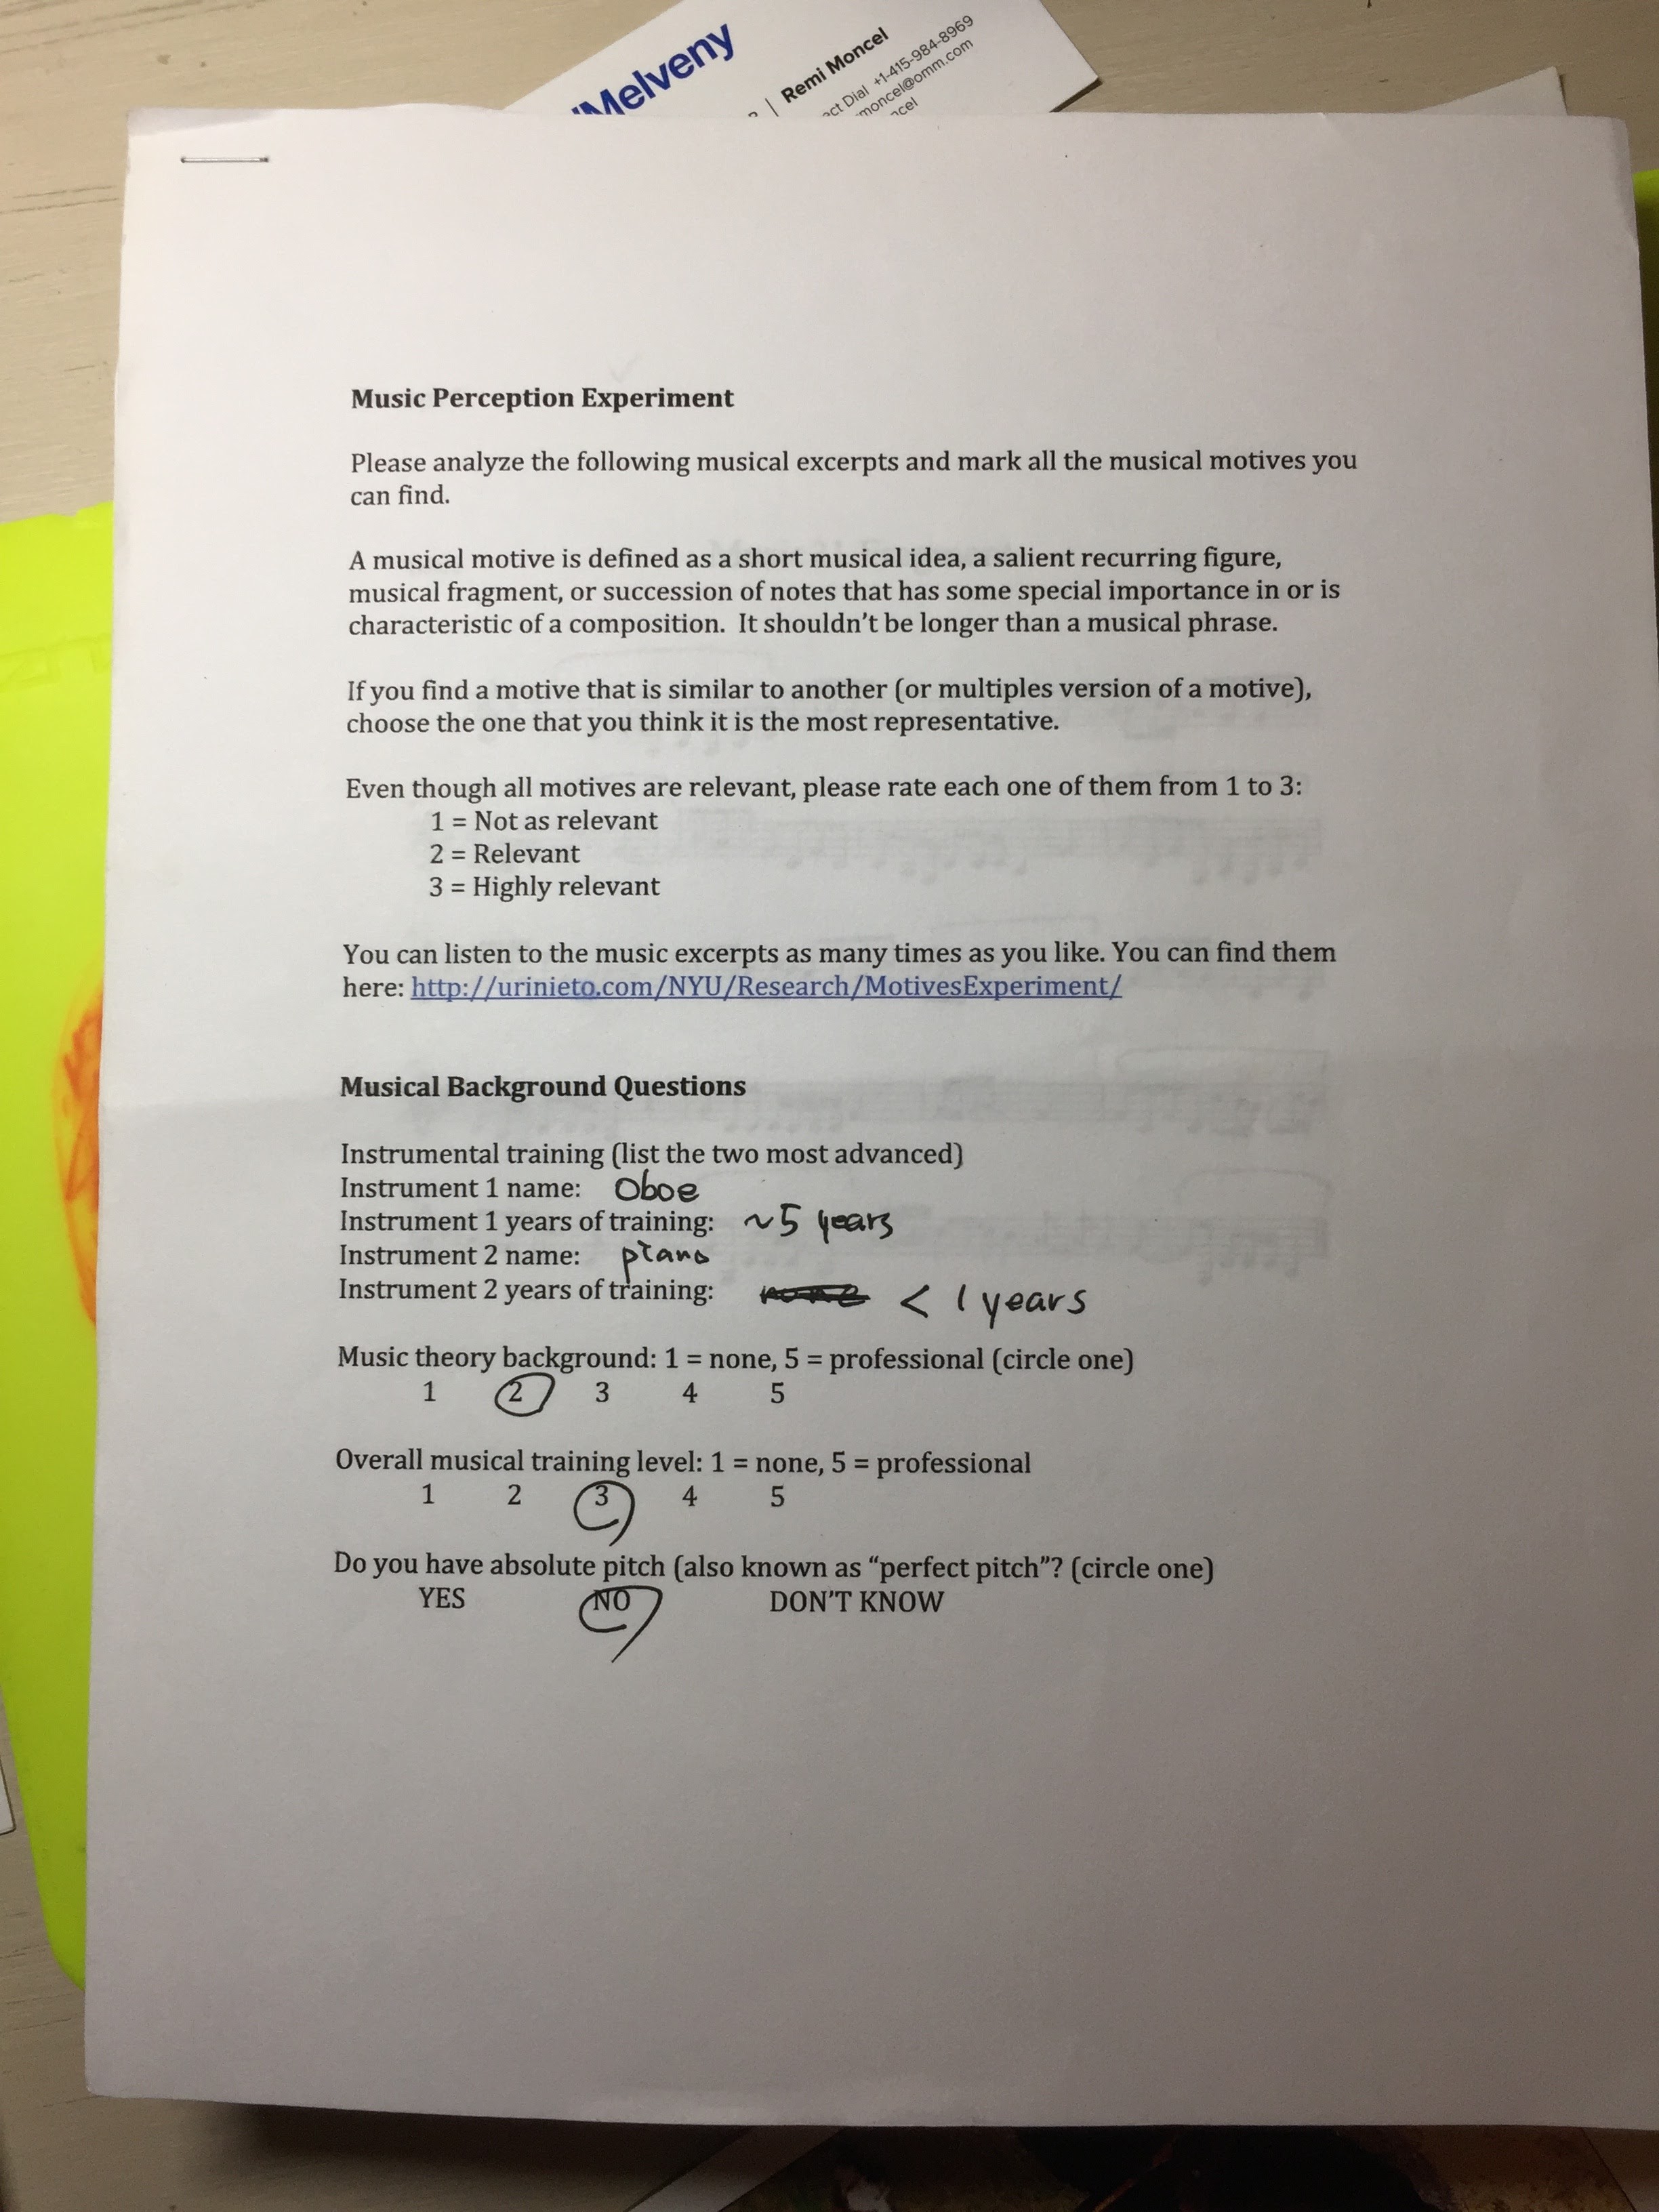 'Melveny
Remi Moncel
ect Dial +1-415-984-8969
moncel@omm.com
ncel
Music Perception Experiment
Please analyze the following musical excerpts and mark all the musical motives you
can find.
A musical motive is defined as a short musical idea, a salient recurring figure,
musical fragment, or succession of notes that has some special importance in or is
characteristic of a composition.  It shouldn't be longer than a musical phrase.
If you find a motive that is similar to another (or multiples version of a motive),
choose the one that you think it is the most representative.
Even though all motives are relevant, please rate each one of them from 1 to 3:
1 = Not as relevant
2 = Relevant
3 = Highly relevant
You can listen to the music excerpts as many times as you like. You can find them
here: http://urinieto.com/NYU/Research/MotivesExperiment/
Musical Background Questions
Instrumental training (list the two most advanced)
Instrument 1 name: Oboe
Instrument 1 years of training: ~5 years
Instrument 2 name: piano
Instrument 2 years of training: none < 1 years
Music theory background: 1 = none, 5 = professional (circle one)
1 2 3 4 5
Overall musical training level: 1 = none, 5 = professional
1 2 3 4 5
Do you have absolute pitch (also known as “perfect pitch”? (circle one)
YES NO DON'T KNOW